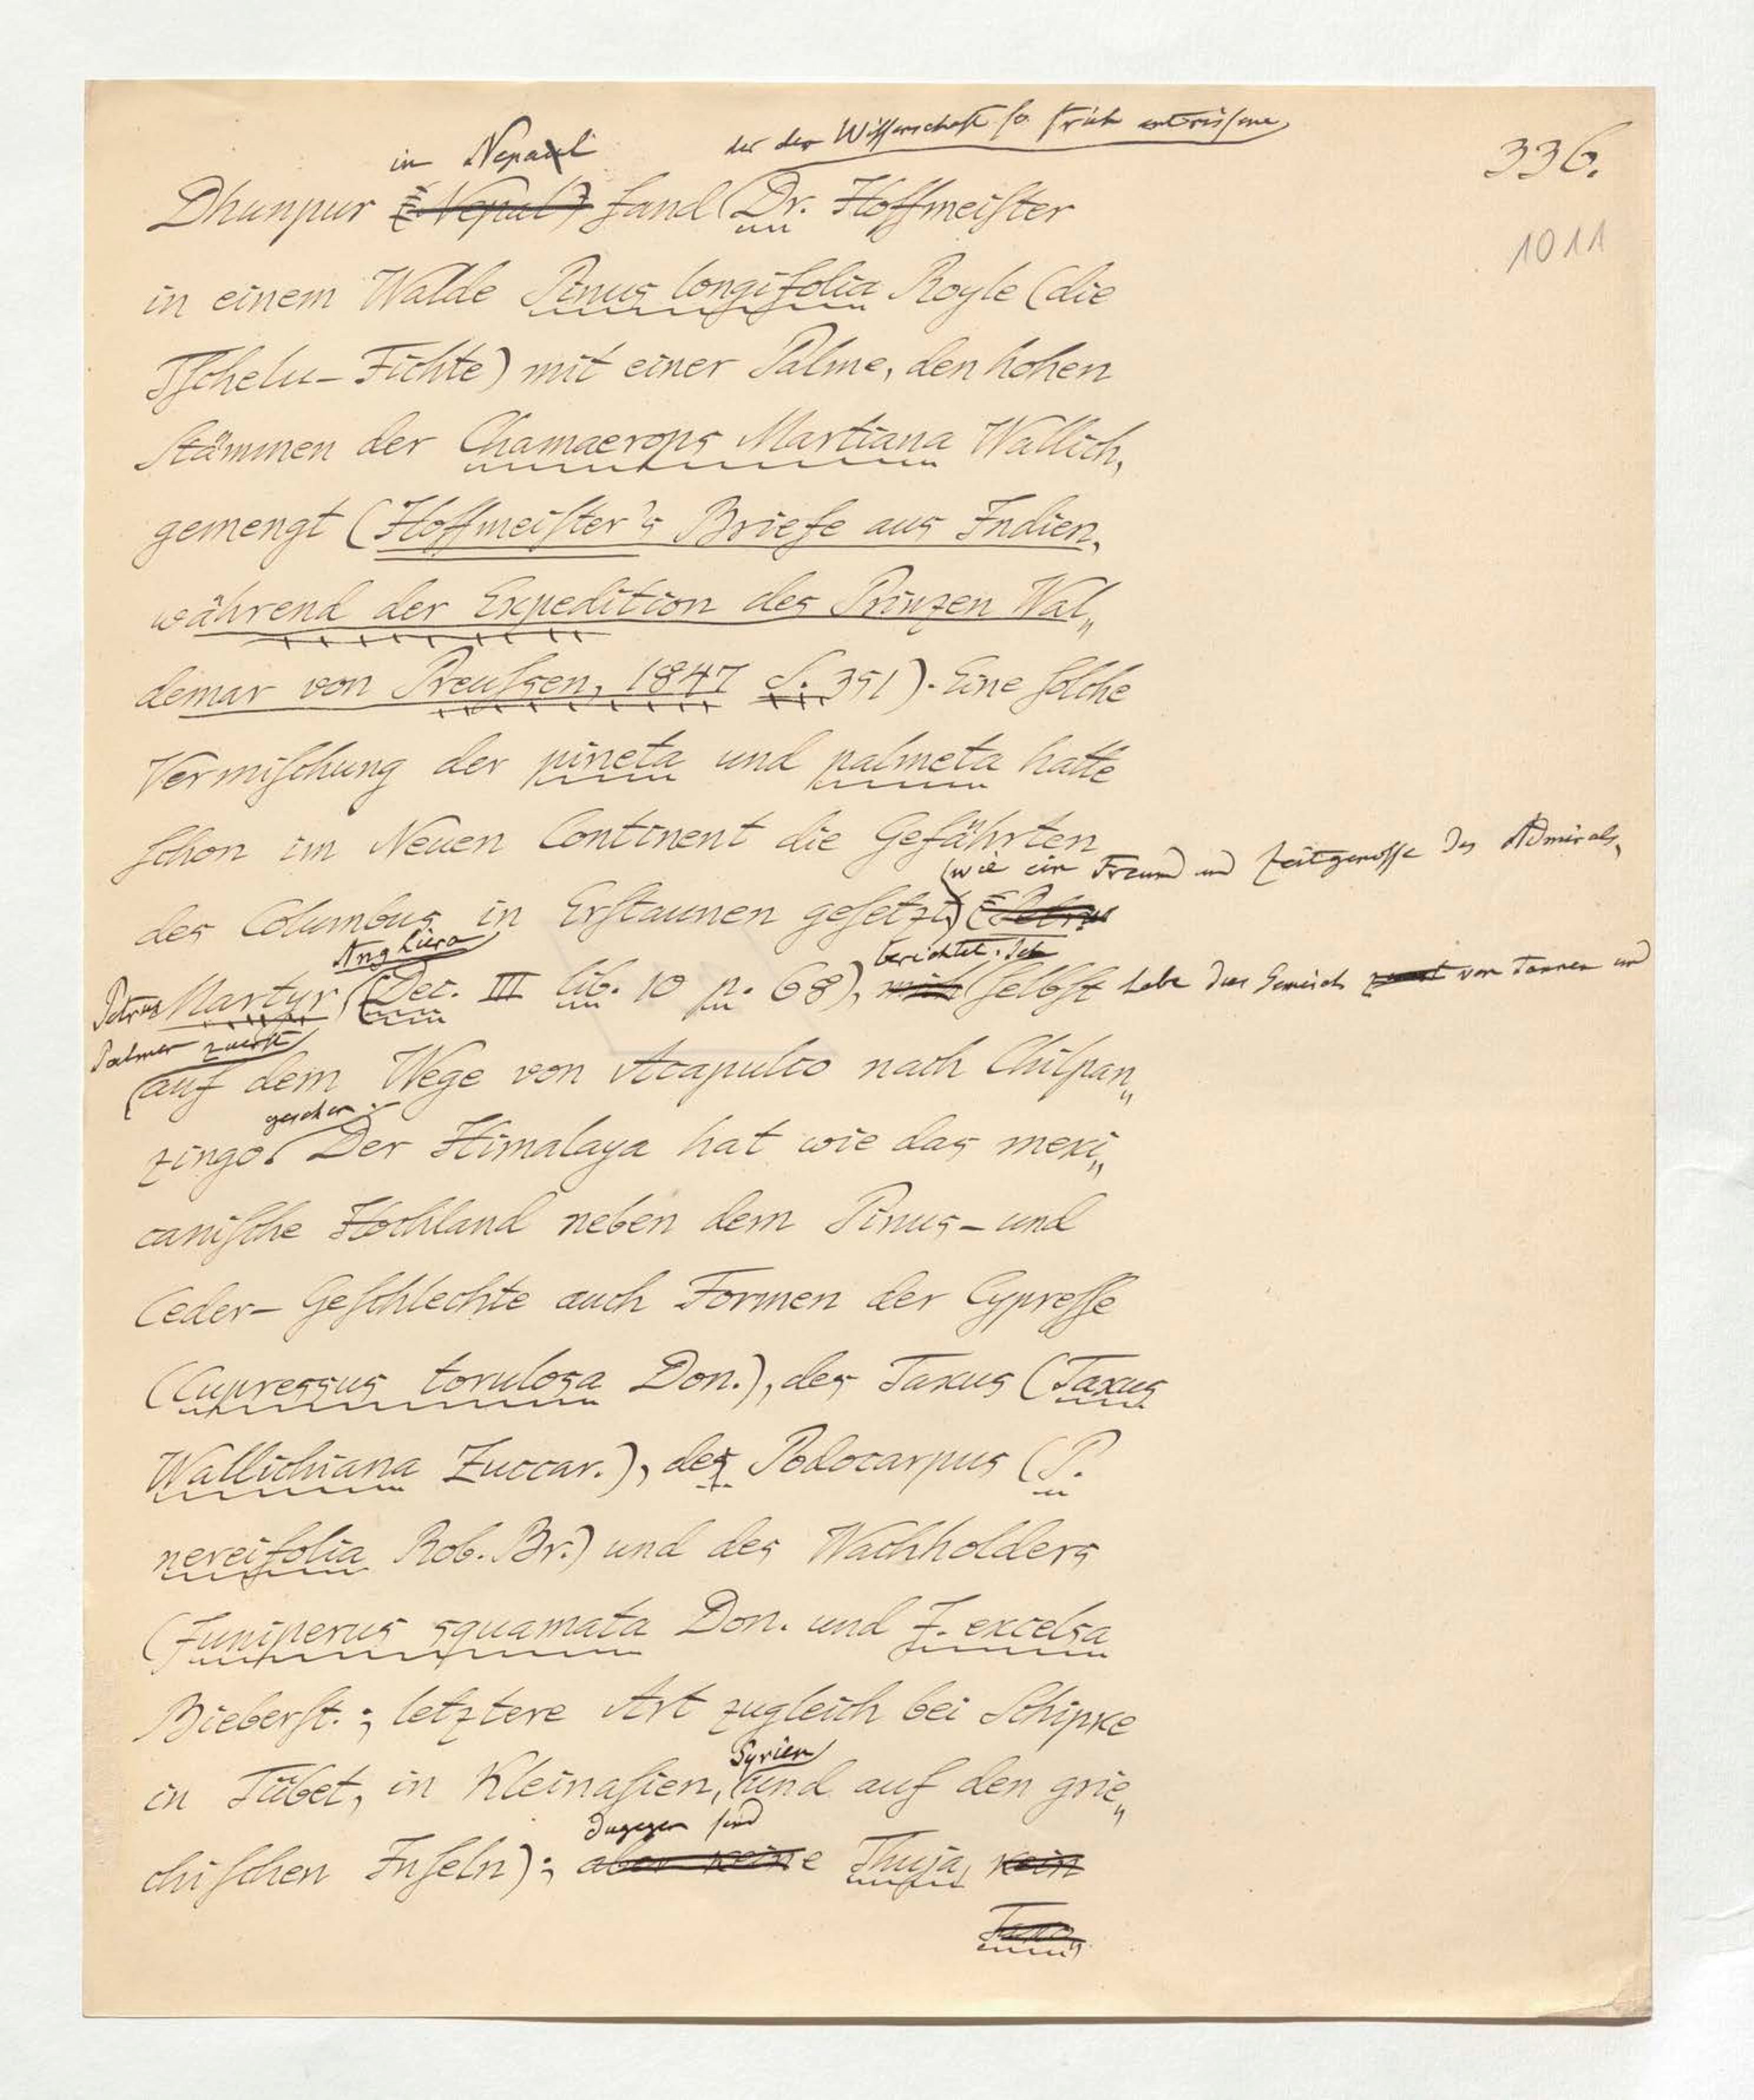 in Nepaul der der Wissenschaft so früh entrissene
336.
Dhunpur (Nepal) fand Dr. Hoffmeister
1011
in einem Walde Pinus longifolia Royle (die
Tschelu-Fichte) mit einer Palme, den hohen
Stämmen der Chamaerops Martiana Wallich,
gemengt (Hoffmeister's Briefe aus Indien,
während der Expedition des Prinzen Wal„
demar von Preussen, 1847 S. 351). Eine solche
Vermischung der pineta und palmeta hatte
schon im Neuen Continent die Gefährten
wie ein Freund und Zeitgenosse des Admirals,
des Columbus in Erstaunen gesetzt (Petrus
Anghiera berichtet. Ich
Petrus Martyr (Dec. III lib. 10 p. 68), mich selbst habe das Gemisch von Tannen und
Palmen zuerst
auf dem Wege von Acapulco nach Chilpan„
gesehen.
zingo. Der Himalaya hat wie das mexi„
canische Hochland neben dem Pinus- und
Ceder-Geschlechte auch Formen der Cypresse
(Cupressus torulosa Don.), des Taxus (Taxus
Wallichiana Zuccar.), des Podocarpus (P.
nereifolia Rob. Br.) und des Wachholders
(Juniperus squamata Don. und J. excelsa
Bieberst.; letztere Art zugleich bei Schipke
Syrien
in Tübet, in Kleinasien, und auf den grie„
dagegen sind
chischen Inseln); aber keine Thuja, kein
Taxo